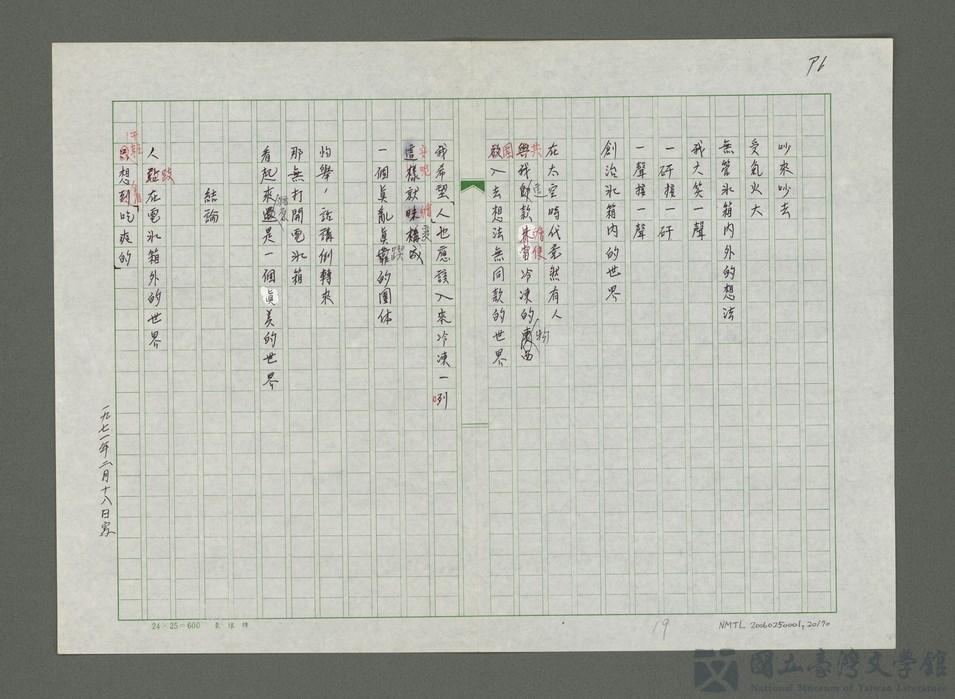 P6
吵來吵去
受氣火大
無管冰箱內外的想法
我大笑一聲
一研接一研
一聲接一聲
創治冰箱內的世界
在太空時代竟然有人
與我款冷凍的
入去想法無同款的世界
我希望「人」也應該入來冷凍一
這樣就
一個真亂真的團体
怐舉，話講倒轉來
那無打開電冰箱
看起來是一個真美的世界
結論
人在電冰箱外的世界
思想到「吃爽的」
一九七一年二月十八日寫
24×25=600
19
NMTL 20060250001, 20170
國立臺灣文學館
National Museum of Taiwan Literature